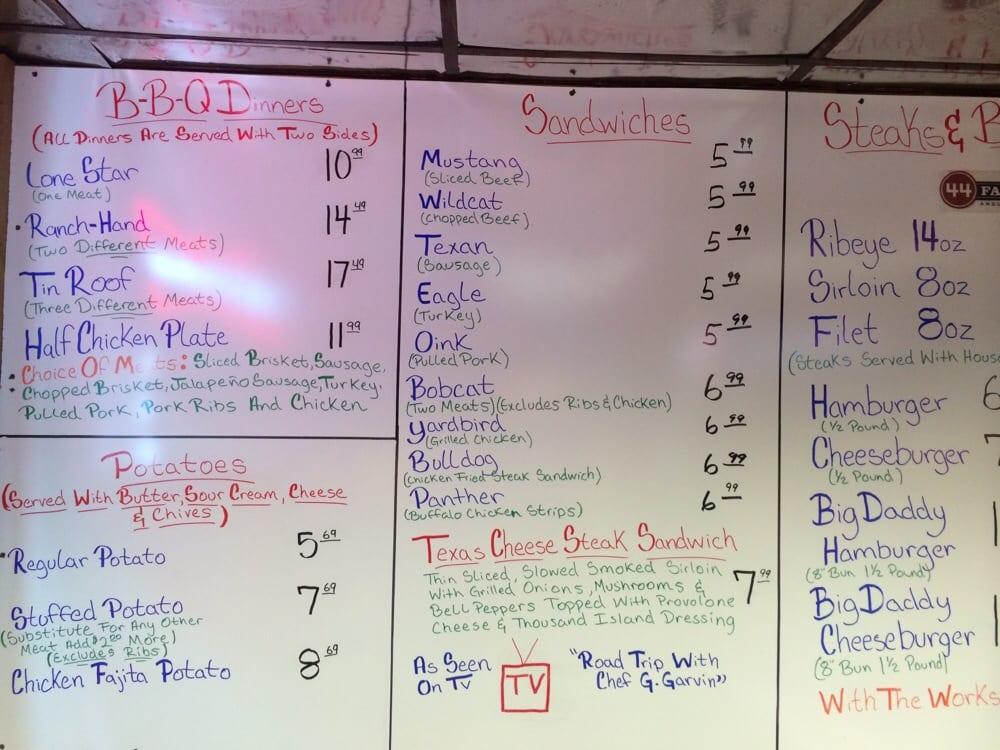 B-B-Q Dinners
(All Dinners Are Served With Two Sides)
Lone Star 10.99
(One Meat)
Ranch-Hand 14.49
(Two Different Meats)
Tin Roof 17.49
(Three Different Meats)
Half Chicken Plate 11.99
Choice Of Meats: Sliced Brisket, Sausage,
Chopped Brisket, Jalapeño Sausage, Turkey,
Pulled Pork, Pork Ribs And Chicken
Potatoes
(Served With Butter, Sour Cream, Cheese
& Chives)
Regular Potato 5.69
Stuffed Potato 7.69
(Substitute For Any Other
Meat Add $2.00 More)
(Excludes Ribs)
Chicken Fajita Potato 8.69
Sandwiches
Mustang 5.99
(Sliced Beef)
Wildcat 5.99
(Chopped Beef)
Texan 5.99
(Sausage)
Eagle 5.99
(Turkey)
Oink 5.99
(Pulled Pork)
Bobcat 6.99
(Two Meats) (Excludes Ribs & Chicken)
Yardbird 6.99
(Grilled Chicken)
Bulldog 6.99
(Chicken Fried Steak Sandwich)
Panther 6.99
(Buffalo Chicken Strips)
Texas Cheese Steak Sandwich
Thin Sliced, Slowed Smoked Sirloin
With Grilled Onions, Mushrooms &
Bell Peppers Topped With Provolone
Cheese & Thousand Island Dressing
7.99
As Seen
On TV
TV
"Road Trip With
Chef G. Garvin"
Steaks & B
44 FA
Ribeye 14oz
Sirloin 8oz
Filet 8oz
(Steaks Served With House
Hamburger 6
(1/2 Pound)
Cheeseburger 7
(1/2 Pound)
Big Daddy
Hamburger 1
(8" Bun 1 1/2 Pound)
Big Daddy
Cheeseburger 1
(8" Bun 1 1/2 Pound)
With The Works